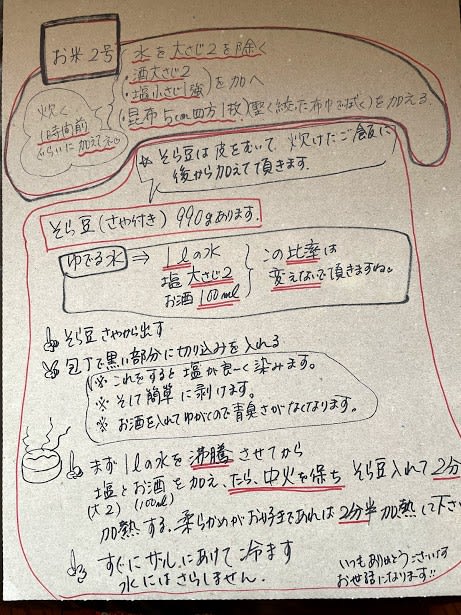 お米2号
水を大さじ2を除く
・酒大さじ2
・塩小さじ1強
を加へ
・昆布5cm四方1枚(堅く絞った布巾でふく)を加える
炊く
1時間前
ぐらいに加えてネ
※そら豆は皮をむいて、炊けたご飯に
後から加えて頂きます。
そら豆(さや付き)990gあります。
ゆでる水⇒
1lの水
塩大さじ2
お酒100ml
この比率は
変えないで頂きますね。
そら豆さやから出す
包丁で黒い部分に切り込みを入れる
※これをすると塩が良ーく染みます。
※そして簡単に剥けます。
※お酒を入れてゆがくので青臭さがなくなります。
まず1lの水を沸騰させてから
塩とお酒を加え、たら、中火を保ちそら豆入れて2分
(大2)(100ml)
加熱する。柔らかめがお好きであれば2分半加熱して下さい
すぐにザルにあけて冷ます
水にはさらしません。
いつもありがとうございます
お世話になります!!